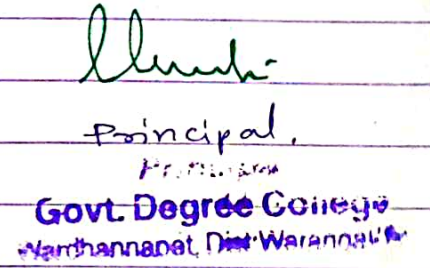 Principal.
Principal
Govt. Degree College
Wardhannapet, Dist: Warangal